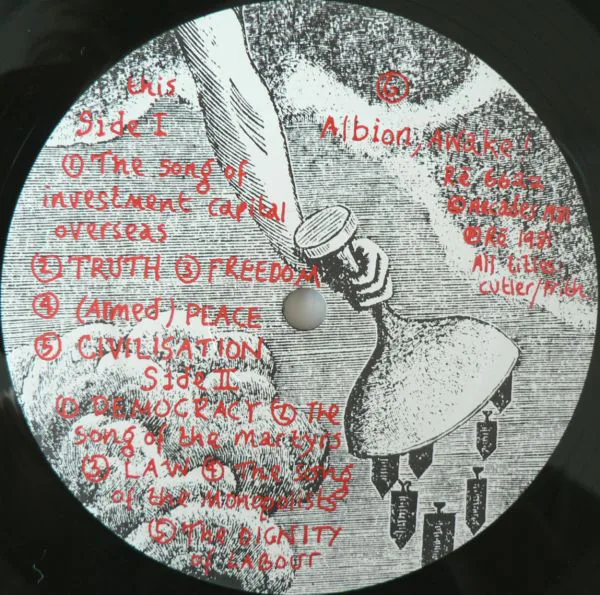 this
Side I
① The song of
investment capital
overseas
② TRUTH ③ FREEDOM
④ (Armed) PEACE
⑤ CIVILISATION
Side II
① DEMOCRACY ② The
song of the martyrs
③ LAW ④ The song
of the Monopolists
⑤ The DIGNITY
of LABOUR
⑥
Albion, AWake!
Rē 6022
Ⓟ Re 1981
All titles
cutler/Frith